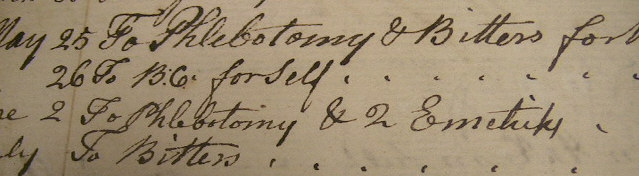 May 25 To Phlebotomy & Bitters for
26 To B.C. for Self " " " " " "
2 To Phlebotomy & 2 Emeticks "
To Bitters " " " " " "